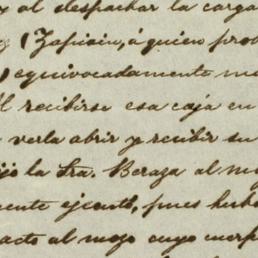 al despachar la carga
(Zapiain, á quien pro
) equivocadamente m
recibirse esa caja en
verla abrir y recibir su
ijo la Sra. Beraza al m
cente ejecutó, pues hub
acto al mozo cuyo cuerp